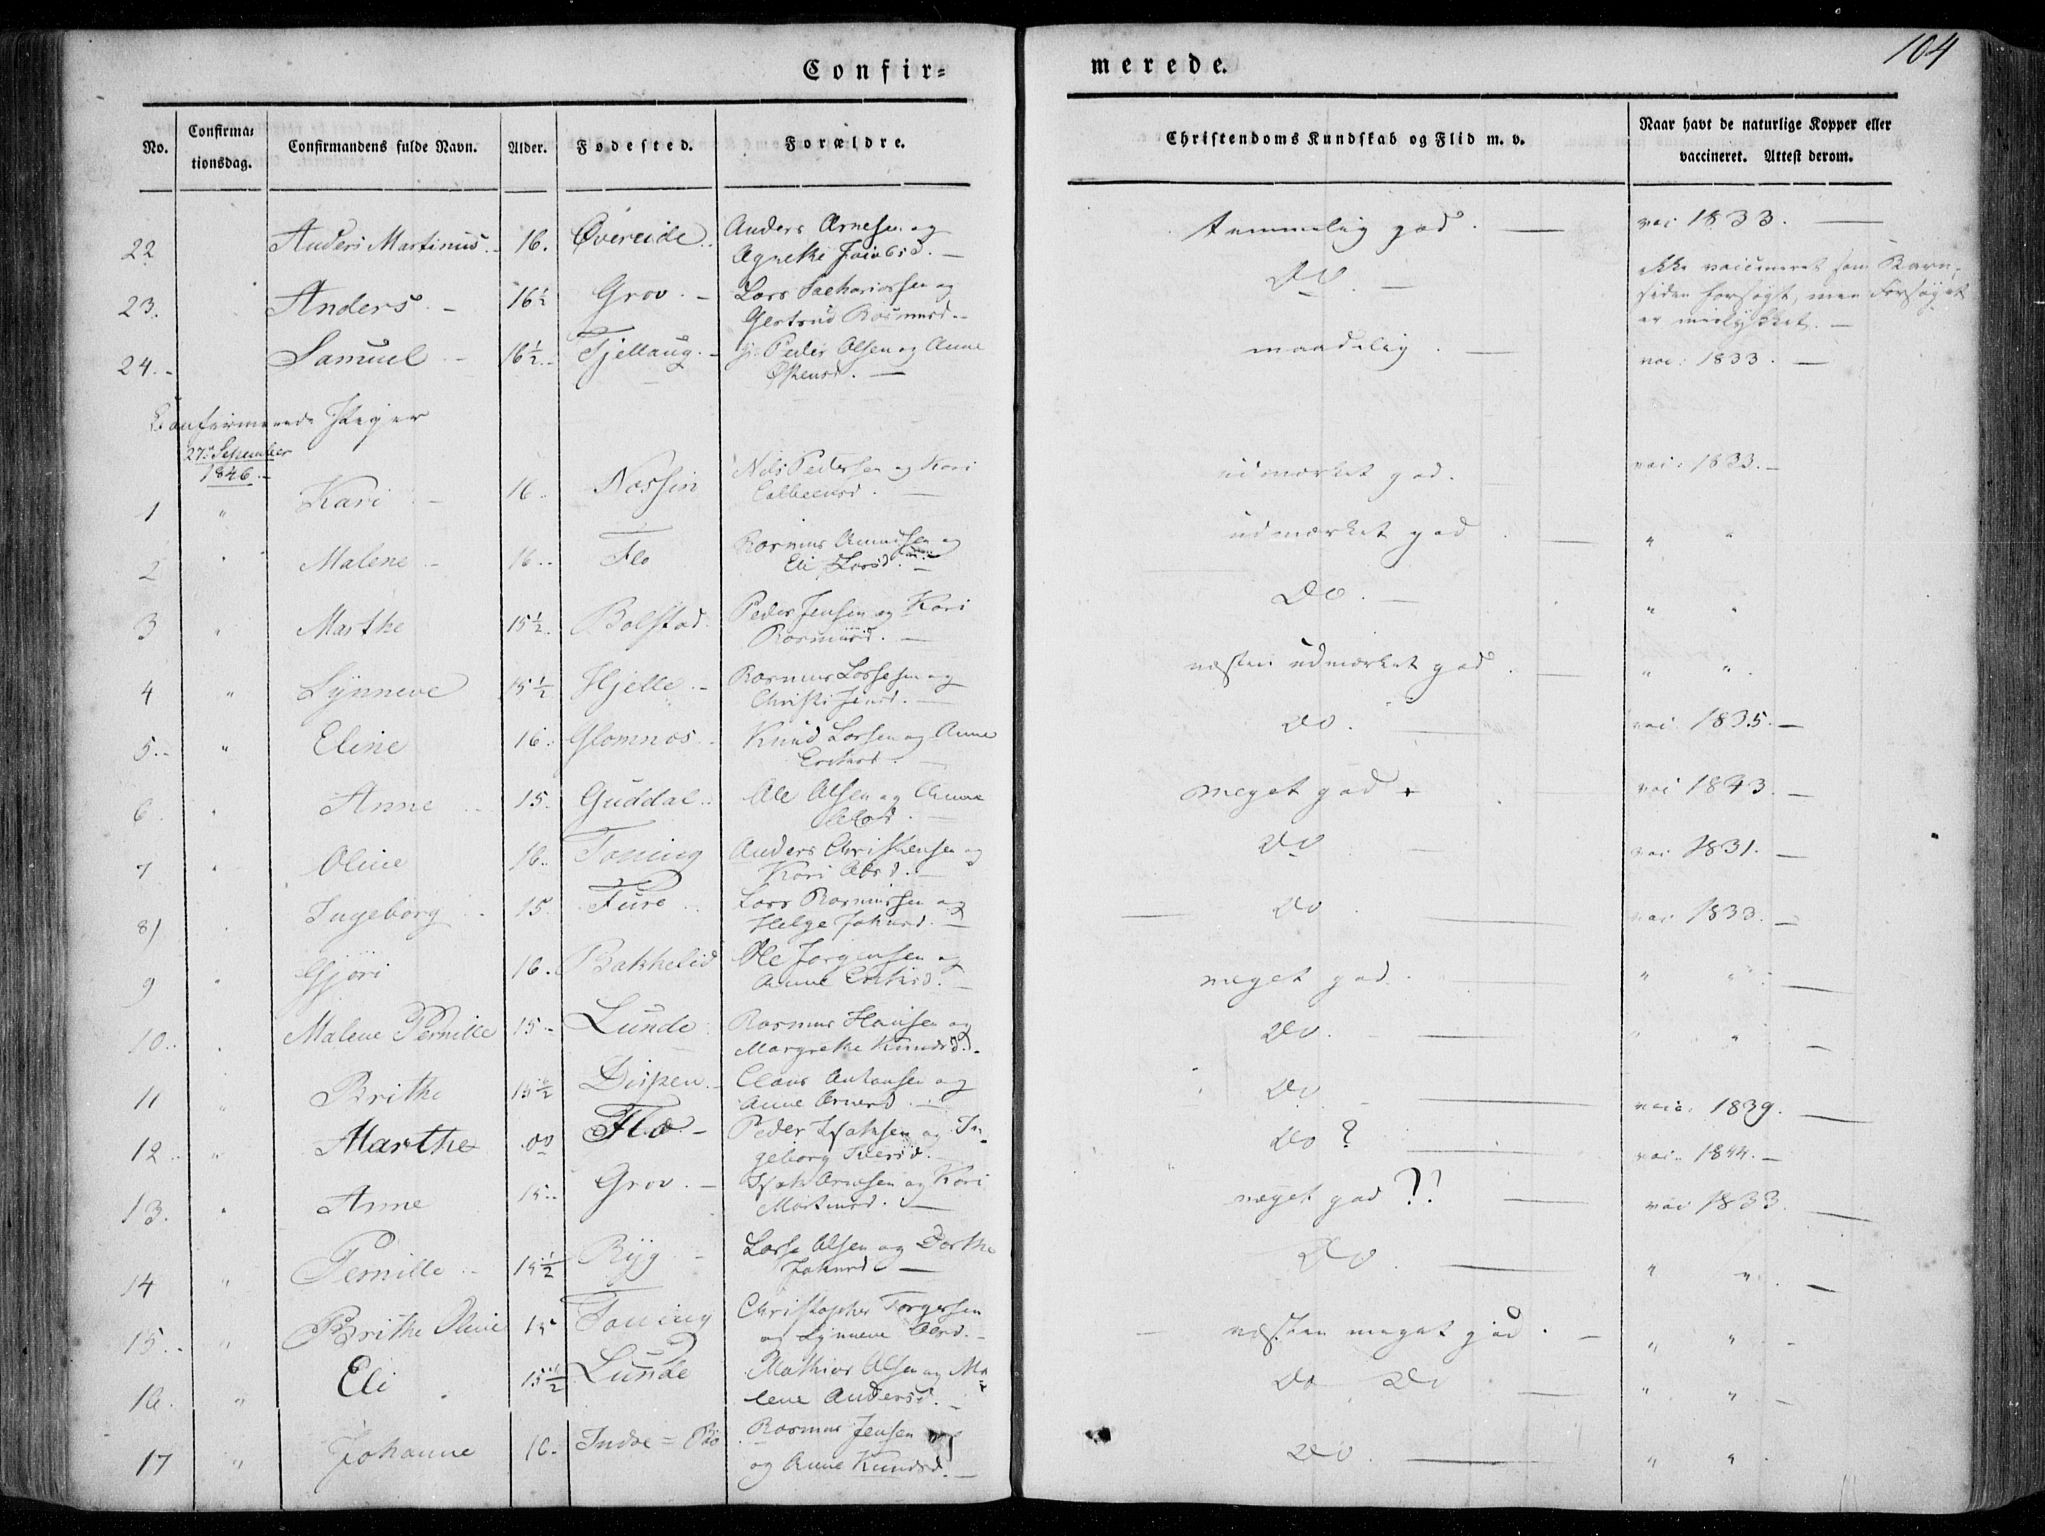 Confir=
merede.
104
No. Confirma=tionsdag. Confirmandens fulde Navn. Alder. Fødested. Forældre. Christendoms Kundskab og Flid m. v. Naar havt de naturlige Kopper eller vaccineret. Attest derom.
22 Anders Martinus 16. Övereide Anders Arnesen og temmelig god. vac 1833.
Agnethe
23. Anders 16½ Grov Lars Sachariassen og Do ikke vaccineret som Barn,
Gertrud Rasmusd. siden forsøgt, men Forsøget
er mislykket.
24. Samuel 16½ Fjellaug Peder Olsen og Anne maadelig vac: 1833.
Confirmerede Piger
27. September
1846.
1 " Kari 16 Nossin Nils Pedersen og Kari udmærket god. vac: 1833.
2 " Malene 16 Flo Rasmus og udmærket god " "
Eli Larsd.
3 " Marthe 15½ Bolstad Peder Jensen og Kari Do. " "
Rasmusd.
4 " Synneve 15½ Hjelle Rasmus Larssen og næsten udmærket god " "
Christi Jensd.
5. " Eline 16. Glomnes Knud Larsen og Anne Do. vac 1835.
6. " Anne 15. Guddal Ole Olsen og Anne meget god vac 1843.
7 " Oline 16. Toning Anders Christensen og Do vac 1831.
Kari
8) " Ingeborg 15. Fure Lars Rasmussen og Do vac 1833.
Helge
9 " Gjøri 16. Bakkelid Ole Jørgensen og meget god. " "
Anne
10. " Malene Pernille 15 Lunde Rasmus Hansen og Do. " "
Margrethe Knudsd.
11 " Brithe 15½ Dispen Claus Antonsen og Do vacc. 1839.
Anne
12 " Marthe do Flo Peder Isaksen og In= Do? vac. 1844.
geborg
13. " Anne 15 Grov Isak Arnesen og Kari meget god?? vac 1833.
14 " Pernille 15½ Ryg Lasse Olsen og Dorthe Do " "
15. " Brithe Oline 15 Toning Christopher Torgersen næsten meget god. " "
og Synneve
16. " Eli 15½ Lunde Mathias Olsen og Ma= Do Do " "
lene Andersd.
17 " Johanne 16. Rasmus Jensen Do " "
og Anne Knudsd.